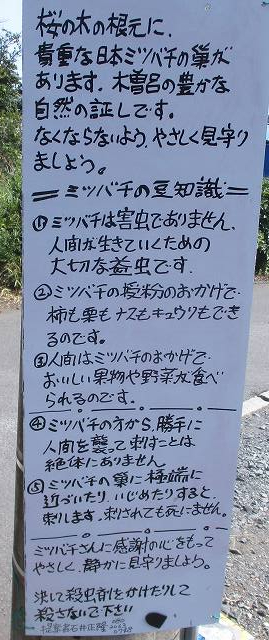 桜の木の根元に、
貴重な日本ミツバチの巣が
あります。木曽呂の豊かな
自然の証しです。
なくならないよう、やさしく見守り
ましょう。
＝ミツバチの豆知識＝
①ミツバチは害虫でありません、
人間が生きていくための
大切な益虫です.
②ミツバチの授粉のおかげで
柿も栗もナスもキュウリもでき
るのです。
③人間はミツバチのおかげで
おいしい果物や野菜が食べ
られるのです。
④ミツバチの方から、勝手に
人間を襲って刺すことは
絶体にありません
⑤ミツバチの巣に極端に
近づいたり、いじめたりすると、
刺します。刺されても死にません。
ミツバチさんに感謝の心をもって
やさしく、静かに見守りましょう。
決して殺虫剤をかけたりして
殺さないで下さい
提案者石井正隆